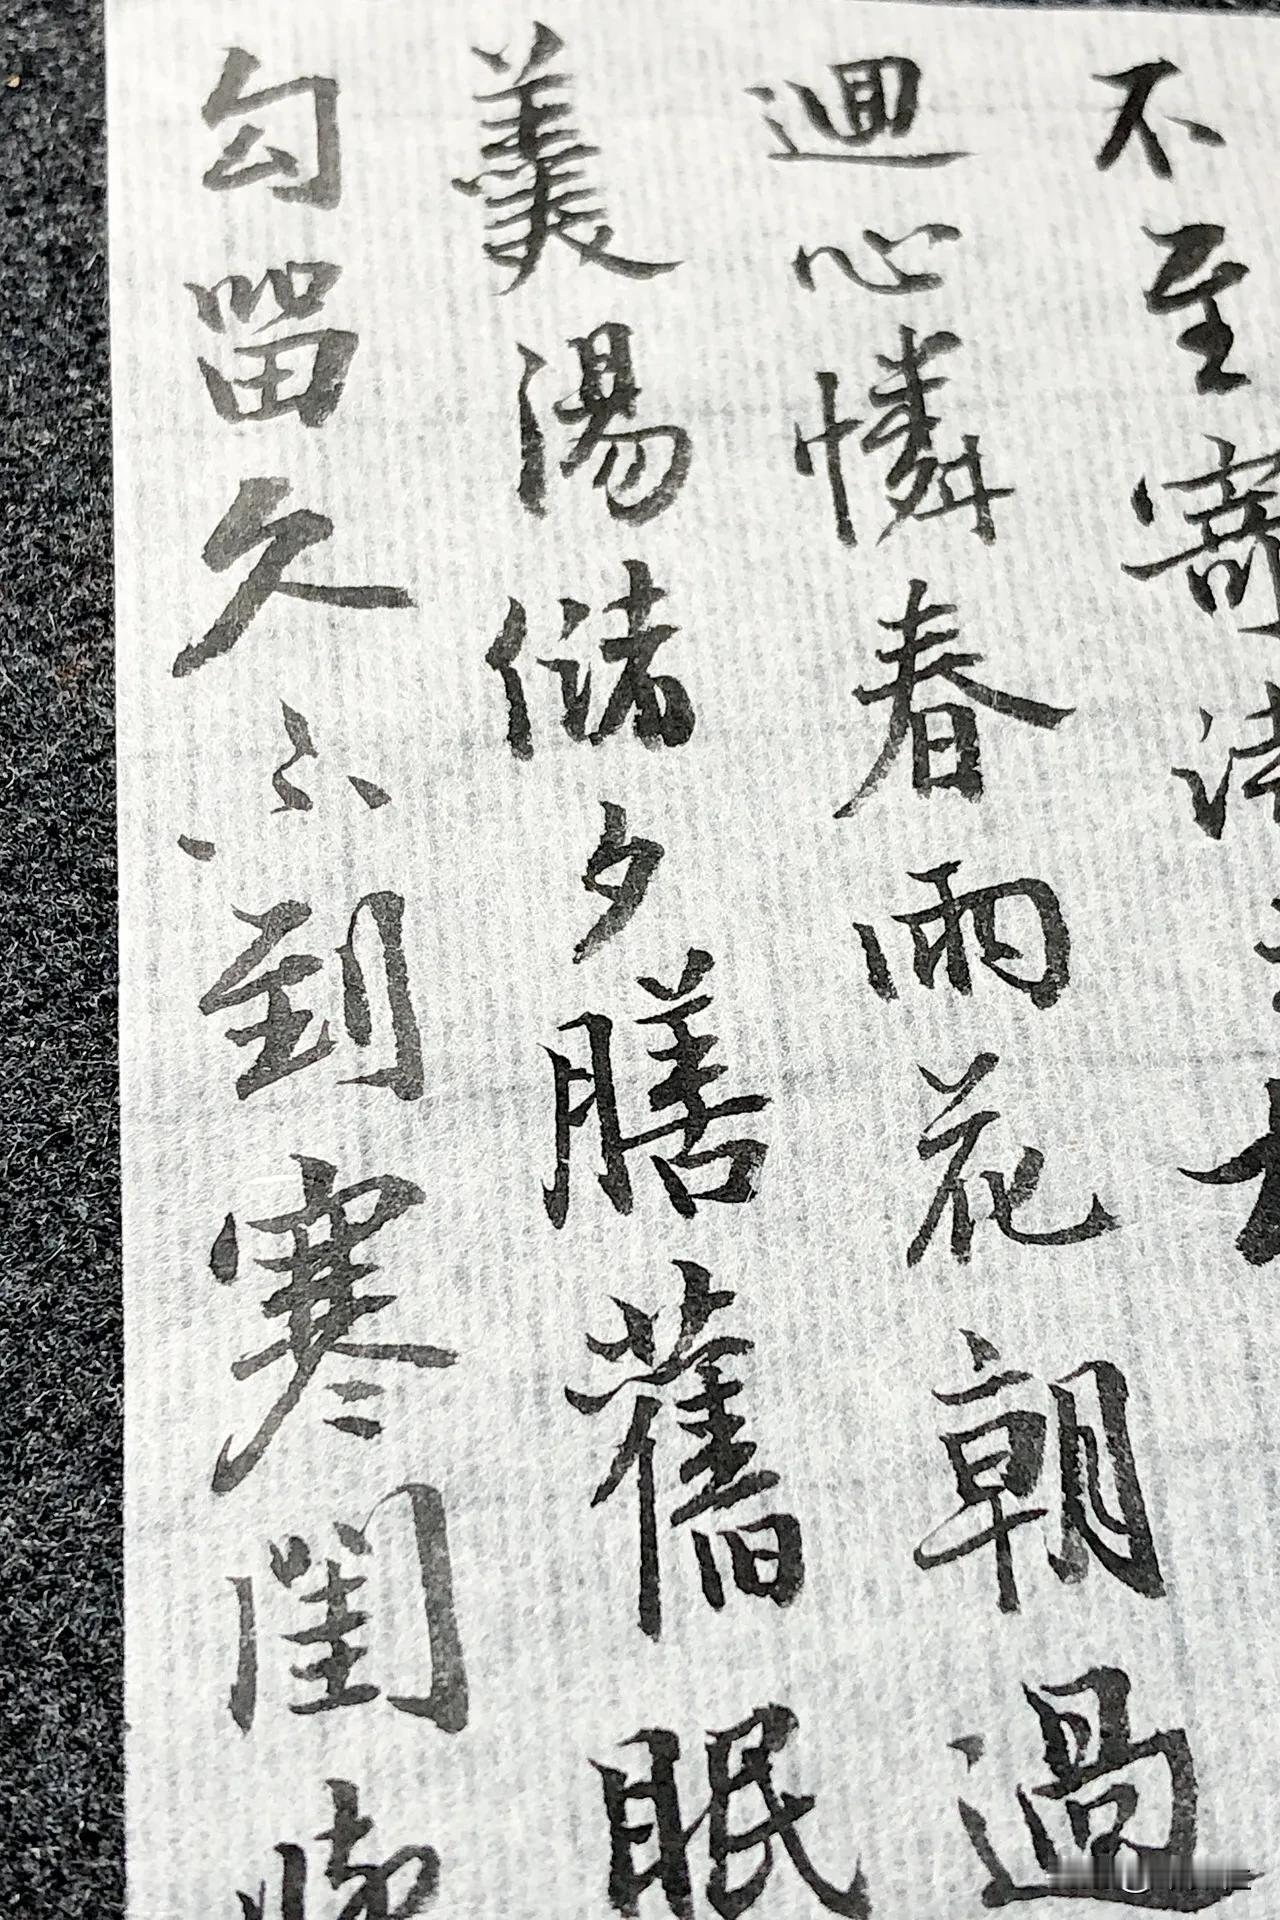 不至寄
迴心憐春雨花朝過
羹湯儲夕膳舊眠
勾留久不到寒閨